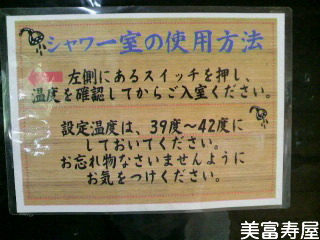 シャワー室の使用方法
左側にあるスイッチを押し、
温度を確認してからご入室ください。
設定温度は、39度～42度に
しておいてください。
お忘れ物なさいませんように
お気をつけください。
美富寿屋